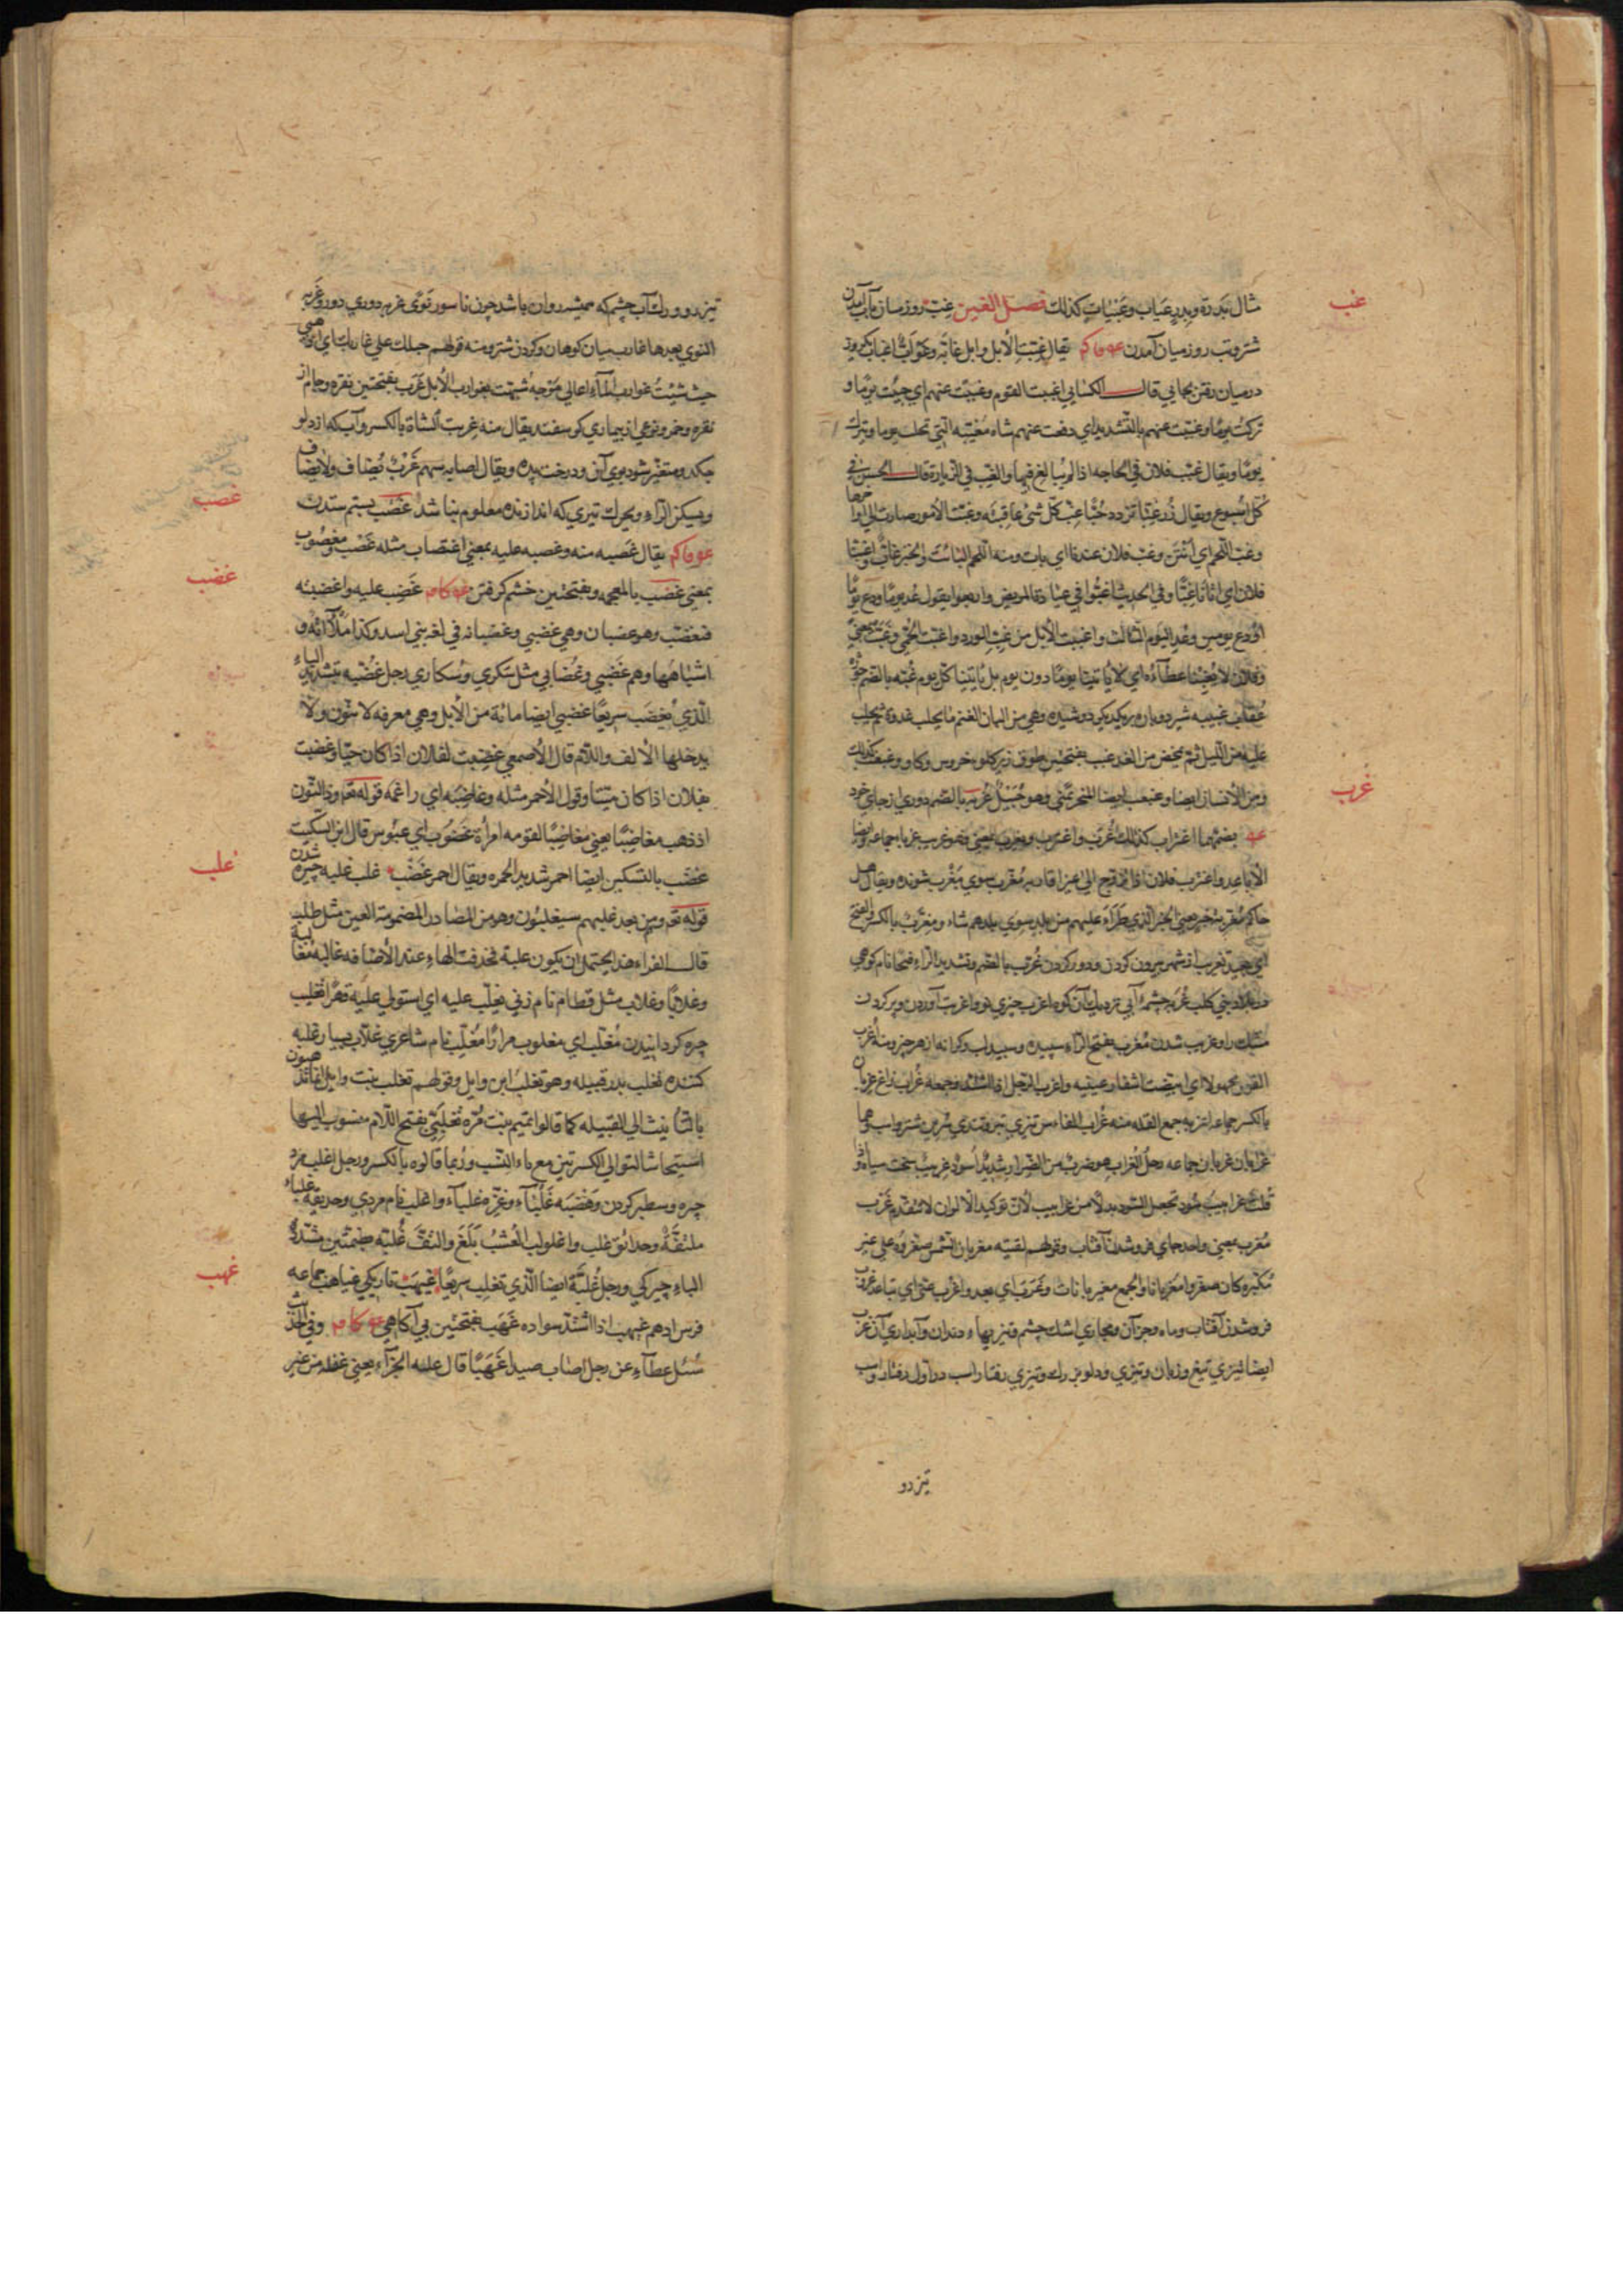 غب
مثال بدرة وبدر عياب وعيبات كذلك فصل الغين غب روز ميان بآب آمدن
شتر وتب روز ميان آمدن يقال غبت الابل وابل غابة وغواب اغباب يكروز
درميان رفتن بجايي قال الكسائي اغببت القوم وغببت عنهم اي جئت يومًا و
تركت يومًا وغببت عنهم بالتشديد اي دفعت عنهم شاة مغببة التي تحلب يوما وتترك
يومًا ويقال غبب فلان في الحاجة اذا لم يبالغ فيها والغب في الزيارة قال الحسن في
كل اسبوع ويقال زر غبا تزدد حبا غب كل شئ عاقبته وغبت الامور صارت الي اواخرها
وغب اللحم اي انتن وغب فلان عندنا اي بات ومنه اللحم البائت والخبز غاب واغبنا
فلان اي اتانا غبًّا وفي الحديث اغبوا في عيادة المريض واربعوا يقول عد يومًا ودع يومًا
او دع يومين وعد اليوم الثالث واغبت الابل من غب الورد واغبت الحمي وغبت بمعنًي
وفلان لا يغبنا عطاؤه اي لا ياتينا يومًا دون يوم بل ياتينا كل يوم غبة بالضم
عقاب غبيبه شير
عليه من الليل ثم يمخض من الغد غبب بفتحتين طوق زير كلو خروس وكاو وغبغب كذلك
غرب
ومن الانسان ايضا وغبغب ايضا المنحر بمني وهو جبيل غربة بالضم دوري از جاي خود
بضمهما اغتراب كذلك تغرب واغترب وغرب بمعني فهو غريب غربا جماعه وايضا
الاباعد واغترب فلان اذا تزوج الي غير اقاربه مغرب سوي مغرب شونده ويقال هل
جاءكم مغربة خبر يعني الخبر الذي طرأ عليهم من بلد سوي بلدهم شاء ومغرب بالكسر والفتح
اي بعيد تغريب از شهر بيرون كردن ودور كردن غرب بالضم وتشديد الراء فتحا نام كوهي
كلب غربه چشمهٔ آبي نزديك آن كوه اغرب چيزي نو واغرب آوردن وپر كردن
مشك را وغريب شدن مغرب بفتح الراء سپيده وسپيد لب وكرانه از هر چيز ومنه اغرب
القوم مجهولا اي ابيضت اشفار عينيه واغرب الرجل اذا اشتد وجعه غراب زاغ غربان
بالكسر جماعه اغربه جمع القلة منه غراب الفاس تيزي تبر
غرابان غربان جماعه رجل الغراب هو ضرب من الصرار شديد اسود غربيب سخت سياه واذا
قلت غرابيب سود تجعل السود بدلا من غرابيب لان توكيد الالوان لا يتقدم غرب
مغرب بمعني واحد جاي فرو شدن آفتاب وقولهم لقيته مغيربان الشمس صغروه علي غير
مكبره كان صغروا مغربانا والجمع مغيربانات وغرب اي بعد واغرب عني اي تباعد غرب
فرو شدن آفتاب وماه وجز آن ومجاري اشك چشم وتيزيها ء دندان وآبداري آن غرب
ايضا تيزي تيغ وزبان وتيزي ودلو بزرك وتيزي رفتار اسب در اول رفتار واسب
تيز دو
تيز دو ورك آب چشم كه هميشه روان باشد چون ناسور نوي غربه دوري دور وغربه
النوي بعدها غارب ميان كوهان وكردن شتر ومنه قولهم حبلك علي غاربك اي اذهبي
حيث شئت غوارب الماء اعالي موجه شبهت بغوارب الابل غرب بفتحتين نقره وجام از
نقره وخمر ونوعي از بيماري كوسفند يقال منه غربت الشاة بالكسر وآب كه از دلو
چكد ومتغير شود بوي آن ودرخت پده ويقال اصابه سهم غرب يضاف ولا يضاف
ويسكن الراء ويحرك تيري كه اندازنده معلوم نباشد غصب بستم ستدن
غصب
يقال غصبه منه وغصبه عليه بمعني اغتصاب مثله غصب ومغصوب
غضب
بمعني غضب بالمعجمه وبفتحتين خشم كرفتن غضب عليه واغضبته
فتغضب وهو غضبان وهي غضبي وغضبانه في لغة بني اسد وكذا ملآنة و
اشباهها وهم غضبي وغضابي مثل سكري وسكاري رجل غضبه بتشديد الباء
الذي يغضب سريعًا غضبي ايضا مائة من الابل وهي معرفه لا تنون ولا
يدخلها الالف واللام قال الاصمعي غضبت لفلان اذا كان حيًّا وغضبت
بفلان اذا كان ميتًا وقول الاحمر مثله وغاضبه اي راغمه قوله تعـ وذا النون
اذ ذهب مغاضبًا يعني مغاضبًا لقومه امراة غضوب اي عبوس قال ابن السكيت
غلب
غضب بالتسكين ايضا احمر شديد الحمره ويقال احمر غضب غلب غلبه چيره شدن
قوله تعـ وهم من بعد غلبهم سيغلبون وهو من المصادر المضمومة العين مثل طلب
قال الفراء هذا يحتمل ان يكون غلبة فحذفت الهاء عند الاضافه غالبه مغالبة
وغلابًا وغلاب مثل قطام نام زني تغلب عليه اي استولي عليه قهرًا تغليب
چيره كردانيدن مغلب اي مغلوب مرارًا مغلب نام شاعري غلاب بسيار غلبه
كننده تغلب پدر قبيله وهو تغلب ابن وايل وقولهم تغلب بنت وايل انما يذهبون
بالتانيث الي القبيله كما قالوا تميم بنت مره تغلبي بفتح اللام منسوب اليها
استيحاشا لتوالي الكسرتين مع ياء النسب وربما قالوه بالكسر ورجل اغلب مرد
چيره وسطبر كردن وهضبه غلباء وعزه غلباء واغلب نام مردي وحديقة غلباء
ملتفة وحدائق غلب واغلولب العشب بلغ والتف غلبه بضمتين مشددة
غهب
الباء چيركي ورجل غلبة ايضا الذي تغلب سريعًا غيهب تاريكي غياهب جماعه
فرس ادهم غيهب اذا اشتد سواده غهب بفتحتين بي آكاهي وفي الحديث
سئل عطاء عن رجل اصاب صيدا غهبًا قال عليه الجزاء يعني غفلة من غير